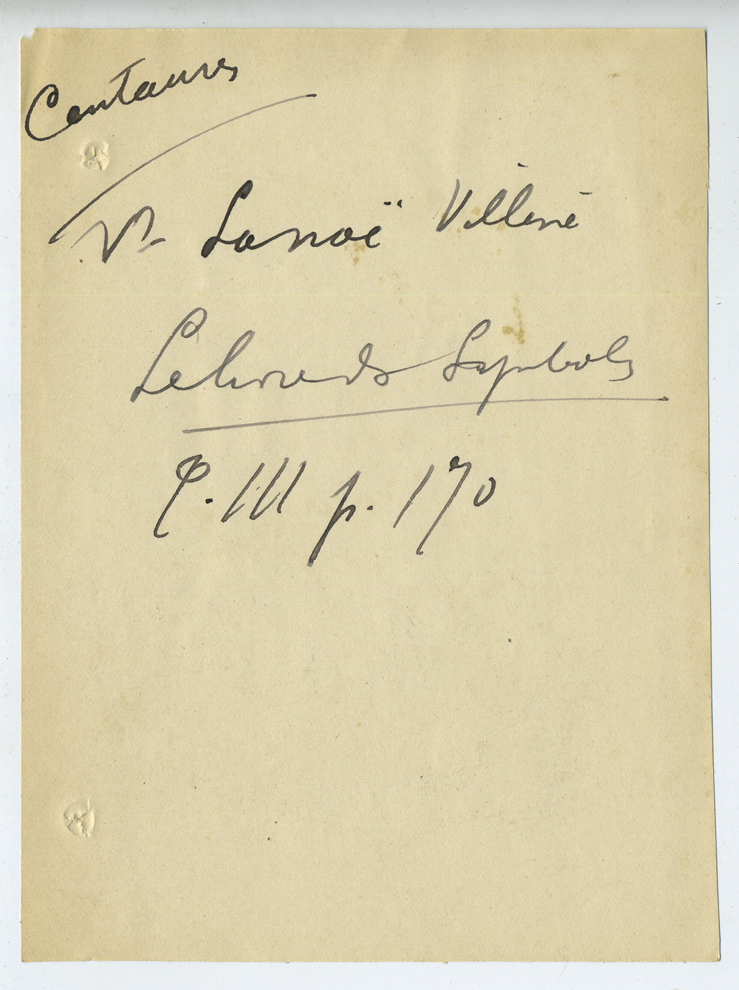 Centaures
Vr Lanoë Villène
Le livre des Symboles
T. III p. 170